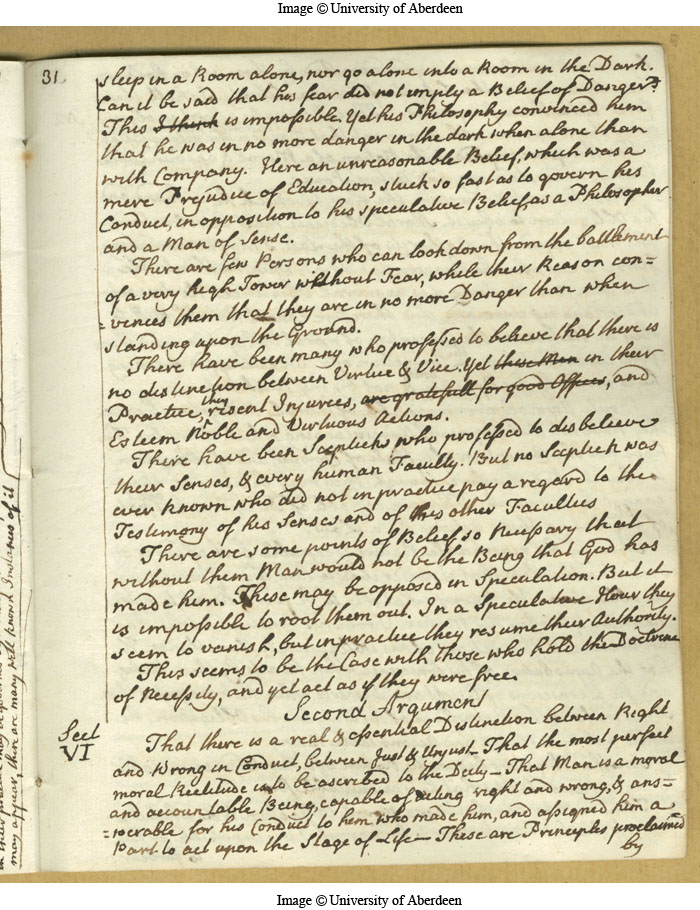 Image © University of Aberdeen
31.
sleep in a Room alone, nor go alone into a Room in the Dark.
Can it be said that his fear did not imply a Belief of Danger?
This I think is impossible. Yet his Philosophy convinced him
that he was in no more danger in the dark when alone than
with Company. Here an unreasonable Belief, which was a
mere Prejudice of Education, stuck so fast as to govern his
Conduct, in opposition to his speculative Belief, as a Philosopher
and a Man of Sense.
There are few Persons who can look down from the battlement
of a very high Tower without Fear, while their Reason con=
=vinces them that they are in no more Danger than when
standing upon the Ground.
There have been many who professed to believe that there is
no distinction between Virtue & Vice. Yet these Men in their
Practice, they resent Injuries, are gratefull for good Offices, and
Esteem Noble and Virtuous Actions.
There have been Scepticks who professed to disbelieve
their Senses, & every human Faculty. But no Sceptick was
ever known who did not in practice pay a regard to the
Testimony of his Senses and of his other Faculties
There are some points of Belief so Necessary that
without them Man would not be the Being that God has
made him. These may be opposed in Speculation. But it
is impossible to root them out. In a Speculative Hour they
seem to vanish, but in practice they resume their Authority.
This seems to be the Case with those who hold the Doctrine
of Necessity, and yet act as if they were free.
Second Argument
Sect
VI
That there is a real & essential Distinction between Right
and Wrong in Conduct, between Just & Unjust — That the most perfect
moral Rectitude is to be ascribed to the Deity — That Man is a moral
and accountable Being, capable of acting right and wrong, & ans=
=werable for his Conduct to him who made him, and assigned him a
Part to act upon the Stage of Life — These are Principles proclaimed
by
may appear, there are many well known Instances of it
Image © University of Aberdeen